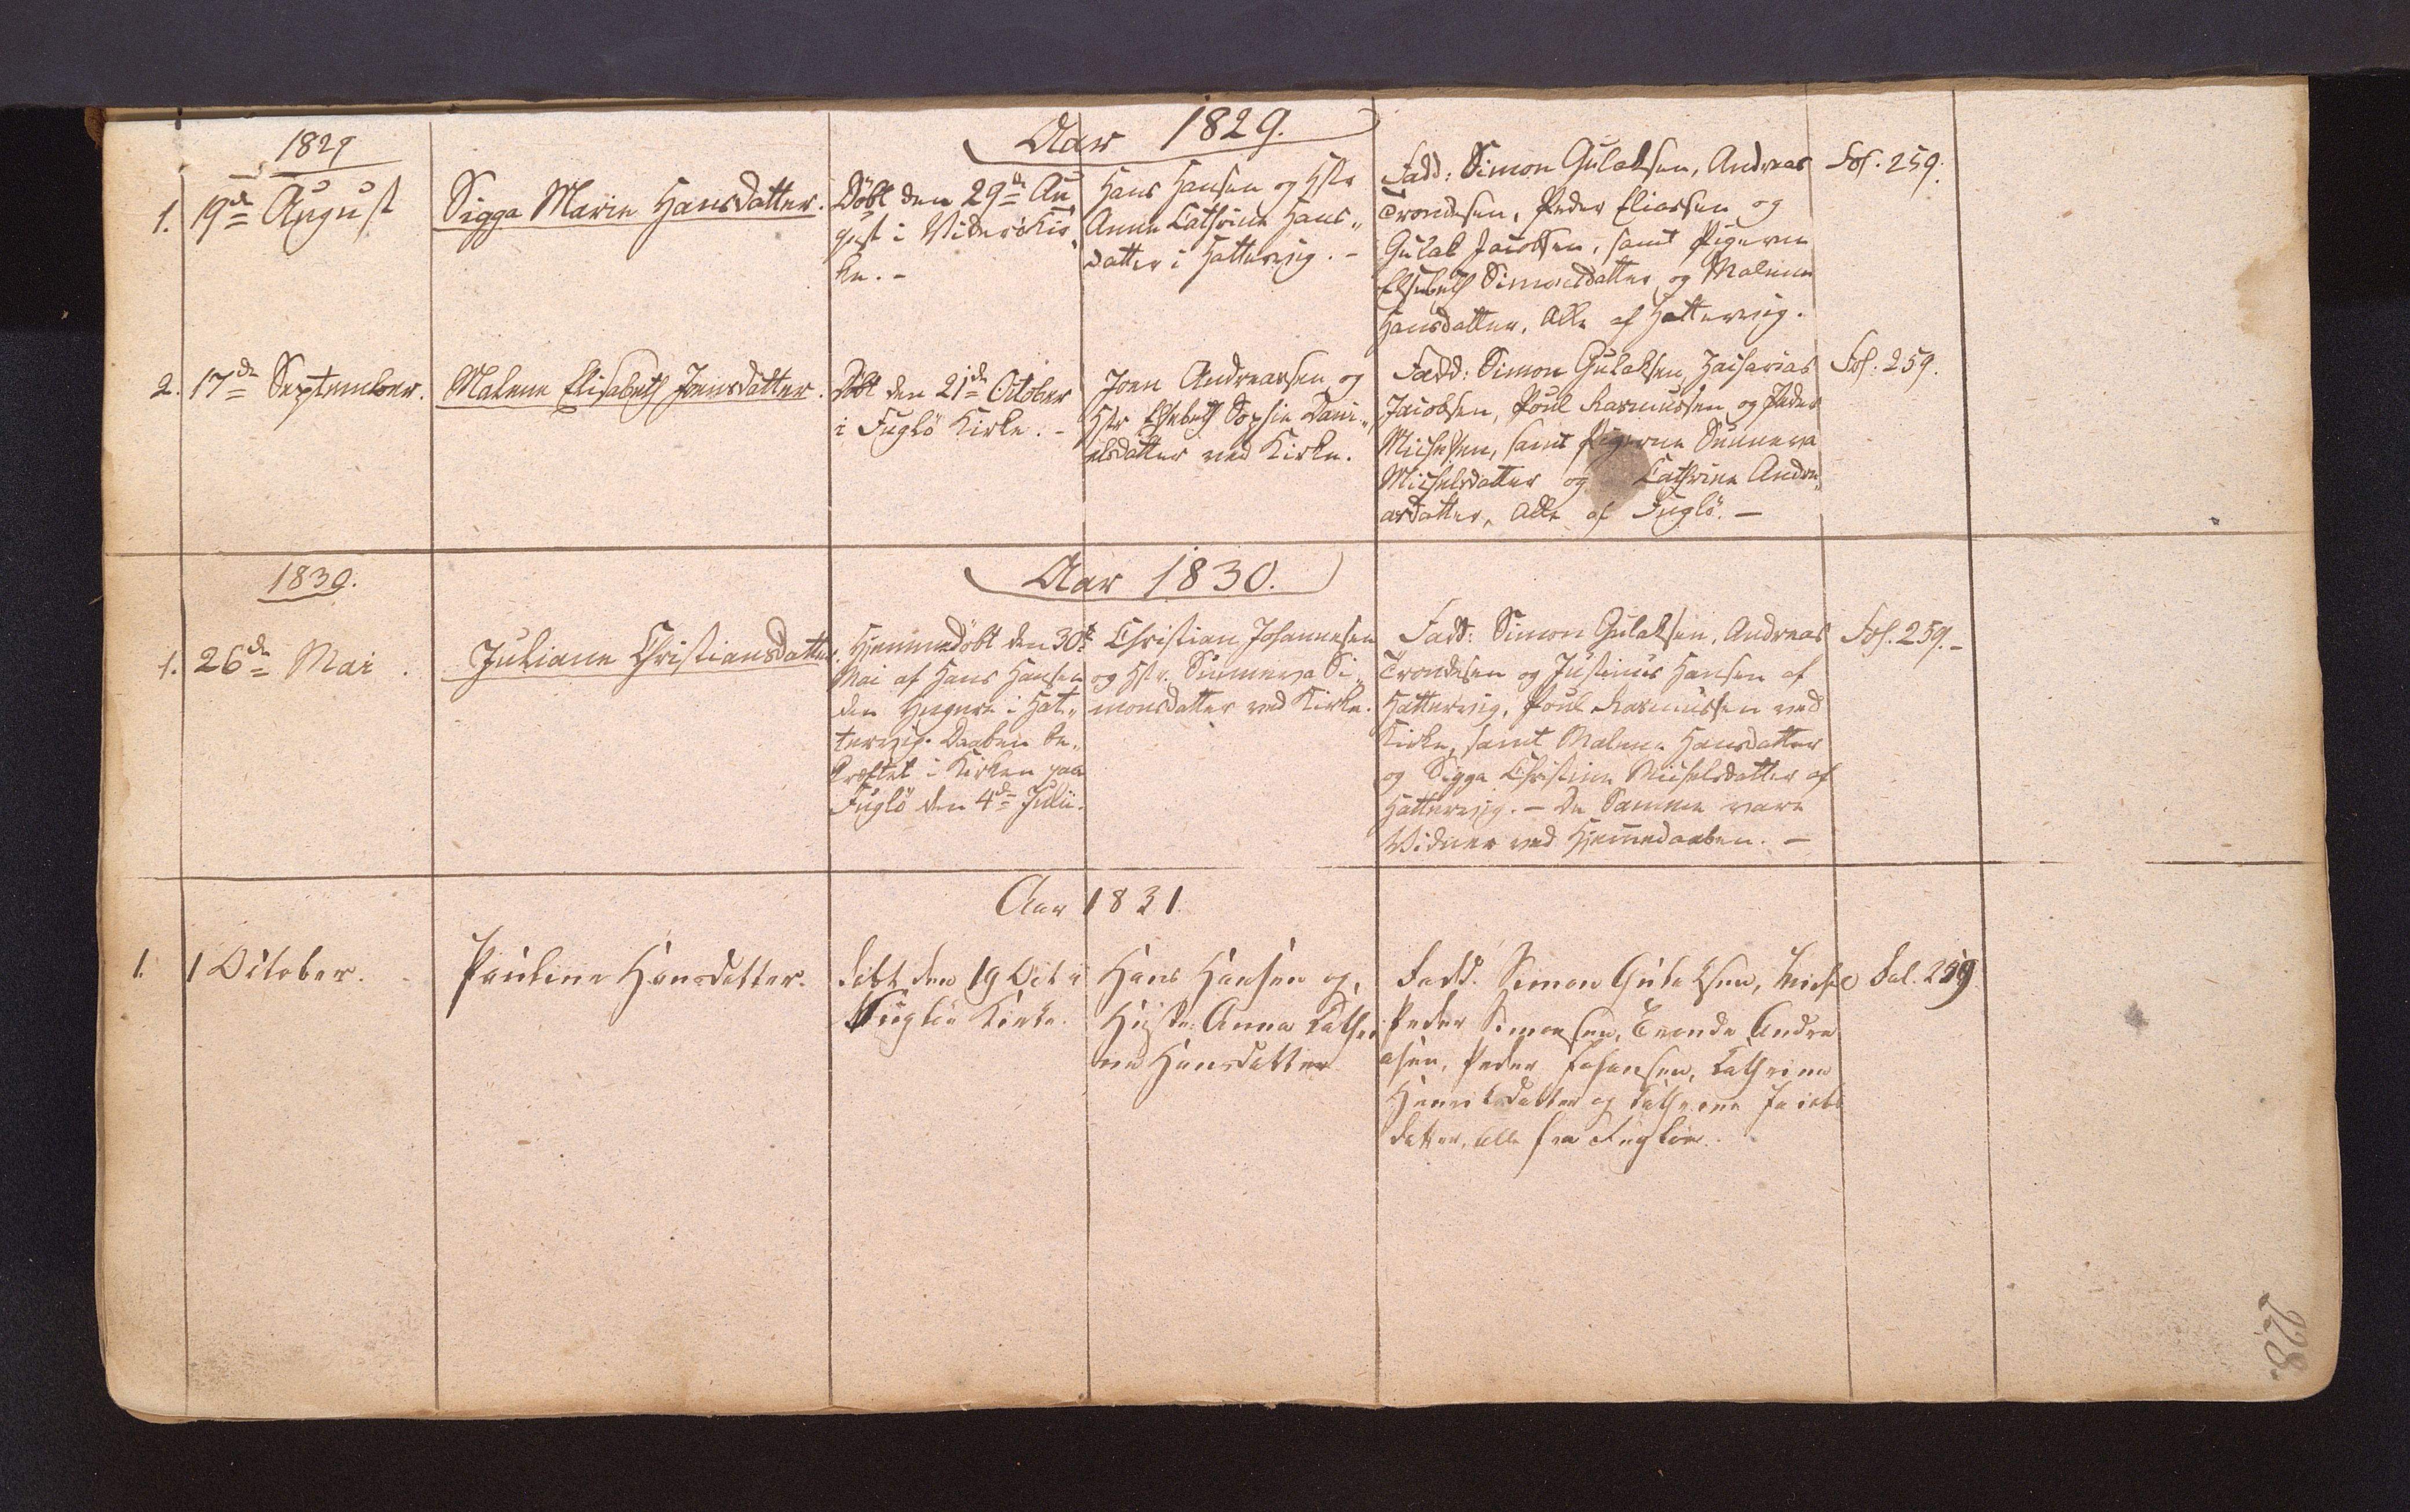 Aar 1829.
1829
1. 19de August
Sigga Marie Hansdatter.
Döbt den 29de Au
gust i Viderö Kir„
ke. -
Hans Hansen og Hstr
Anne Cathrine Hans„
datter i Hattervig. -
Fadd: Simon Gulaksen, Andreas
Trondesen, Peder Eliassen og
Gulak Jacobsen, samt Pigerne
Elsebeth Simonsdatter og Malene
Hansdatter, Alle af Hattervig.
Fol. 259.
2. 17de September.
Malene Elisabeth Joensdatter.
Döbt den 21de October
i Fuglö Kirke. -
Joen Andreassen og
Hstr Elsebeth Sophie Dani„
elsdatter ved Kirke.
Fadd: Simon Gulaksen, Zacharias
Jacobsen, Poul Rasmussen og Peder
Michelsen, samt Pigerne Sunneva
Michelsdatter og Cathrine Andre„
asdatter, Alle af Fuglö. -
Fol. 259.
Aar 1830.
1830.
1. 26de Mai.
Juliane Christiansdatter.
Hjemmedöbt den 30te
Mai af Hans Hansen
den Yngere i Hat„
tervig. Daaben be„
kræftet i Kirken paa
Fuglö den 4de Julii.
Christian Johannesen
og Hstr. Sunneva Si„
monsdatter ved Kirke.
Fadd: Simon Gulaksen, Andreas
Trondesen og Justinus Hansen af
Hattervig, Poul Rasmussen ved
Kirke, samt Malene Hansdatter
og Sigga Christine Michelsdatter af
Hattervig. - De Samme vare
Vidner ved Hjemmedaaben. -
Fol. 259. -
Aar 1831.
1. 1 October.
Pauline Hansdatter.
döbt den 19 Oct i
Fugloe Kirke.
Hans Hansen og
Hustr: Anna Cathri
ne Hansdatter
Fadd. Simon Gulaksen, Michel
Peder Simonsen, Tronde Andre
asen, Peder Johansen, Cathrine
Henriksdatter og Cathrine Jacobs
datter, alle fra Fugloe.
Fol. 259
228.